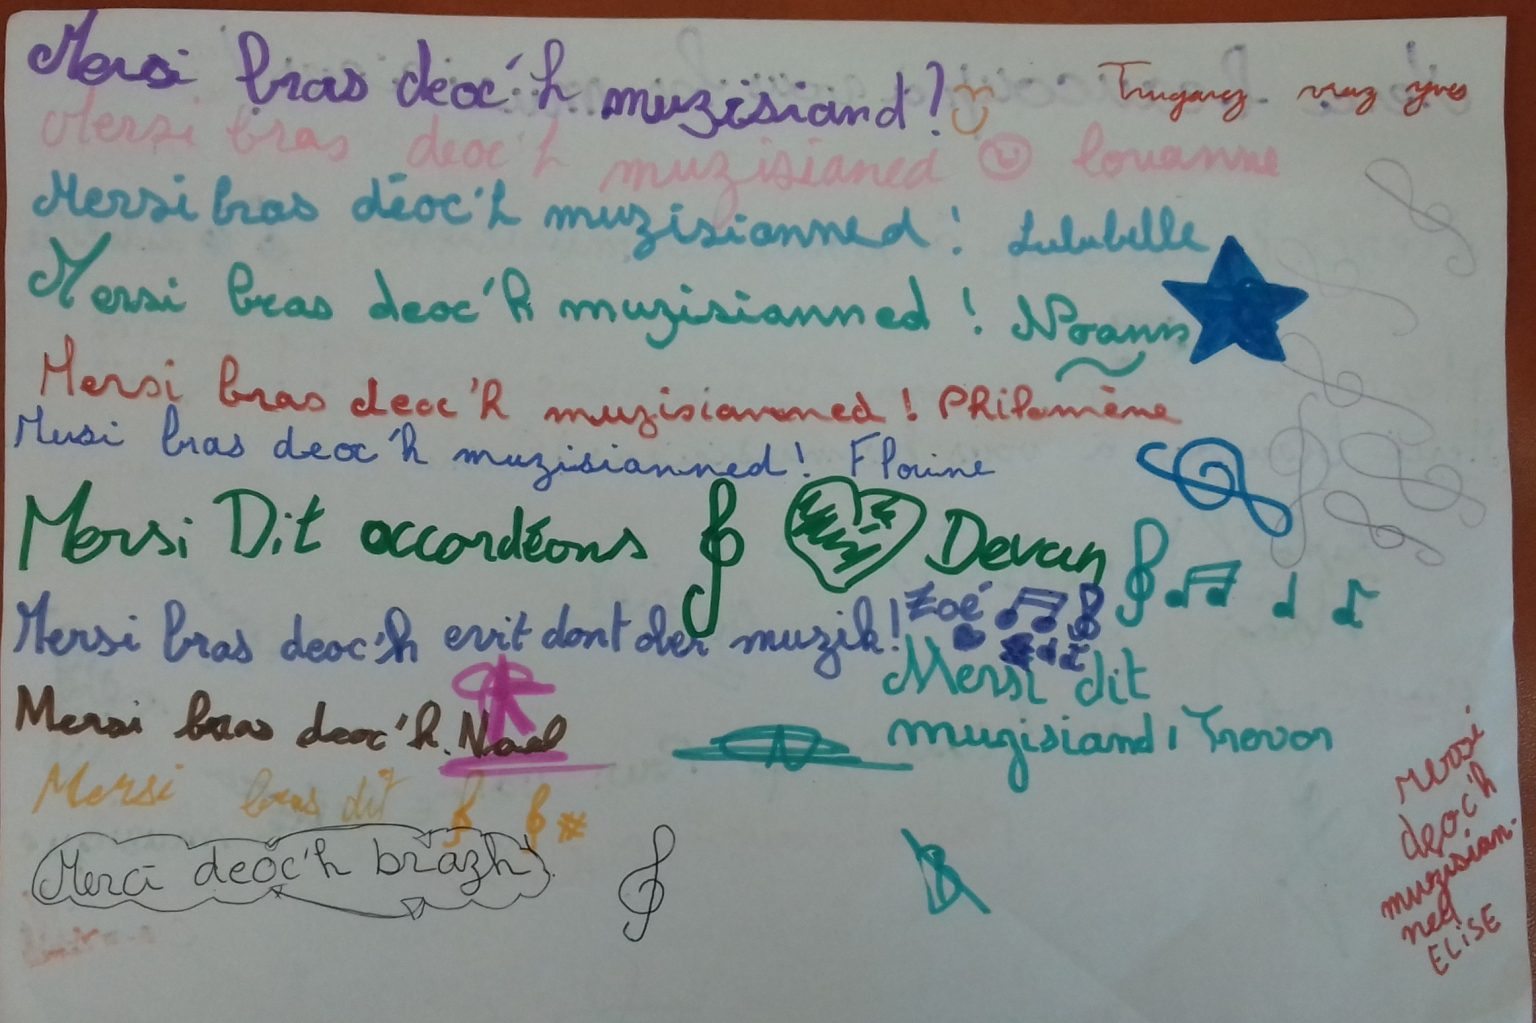 Mersi bras deoc'h muzisiand !
Trugarez vraz yves
Mersi bras deoc'h muzisianed louanne
Mersi bras déoc'h muzisianned ! Lulubelle
Mersi bras deoc'h muzisianned ! Noann
Mersi bras deoc'h muzisianned ! Philomène
Mersi bras deoc'h muzisianned ! Florine
Mersi Dit accordéons Devan
Mersi bras deoc'h evit dont der muzik ! Zoé
Mersi dit
muzisiand ! Trevor
Mersi bras deoc'h. Nael
Mersi bras dit
Merci deoc'h brazh
mersi
deoc'h
muzisian-
ned
ELISE